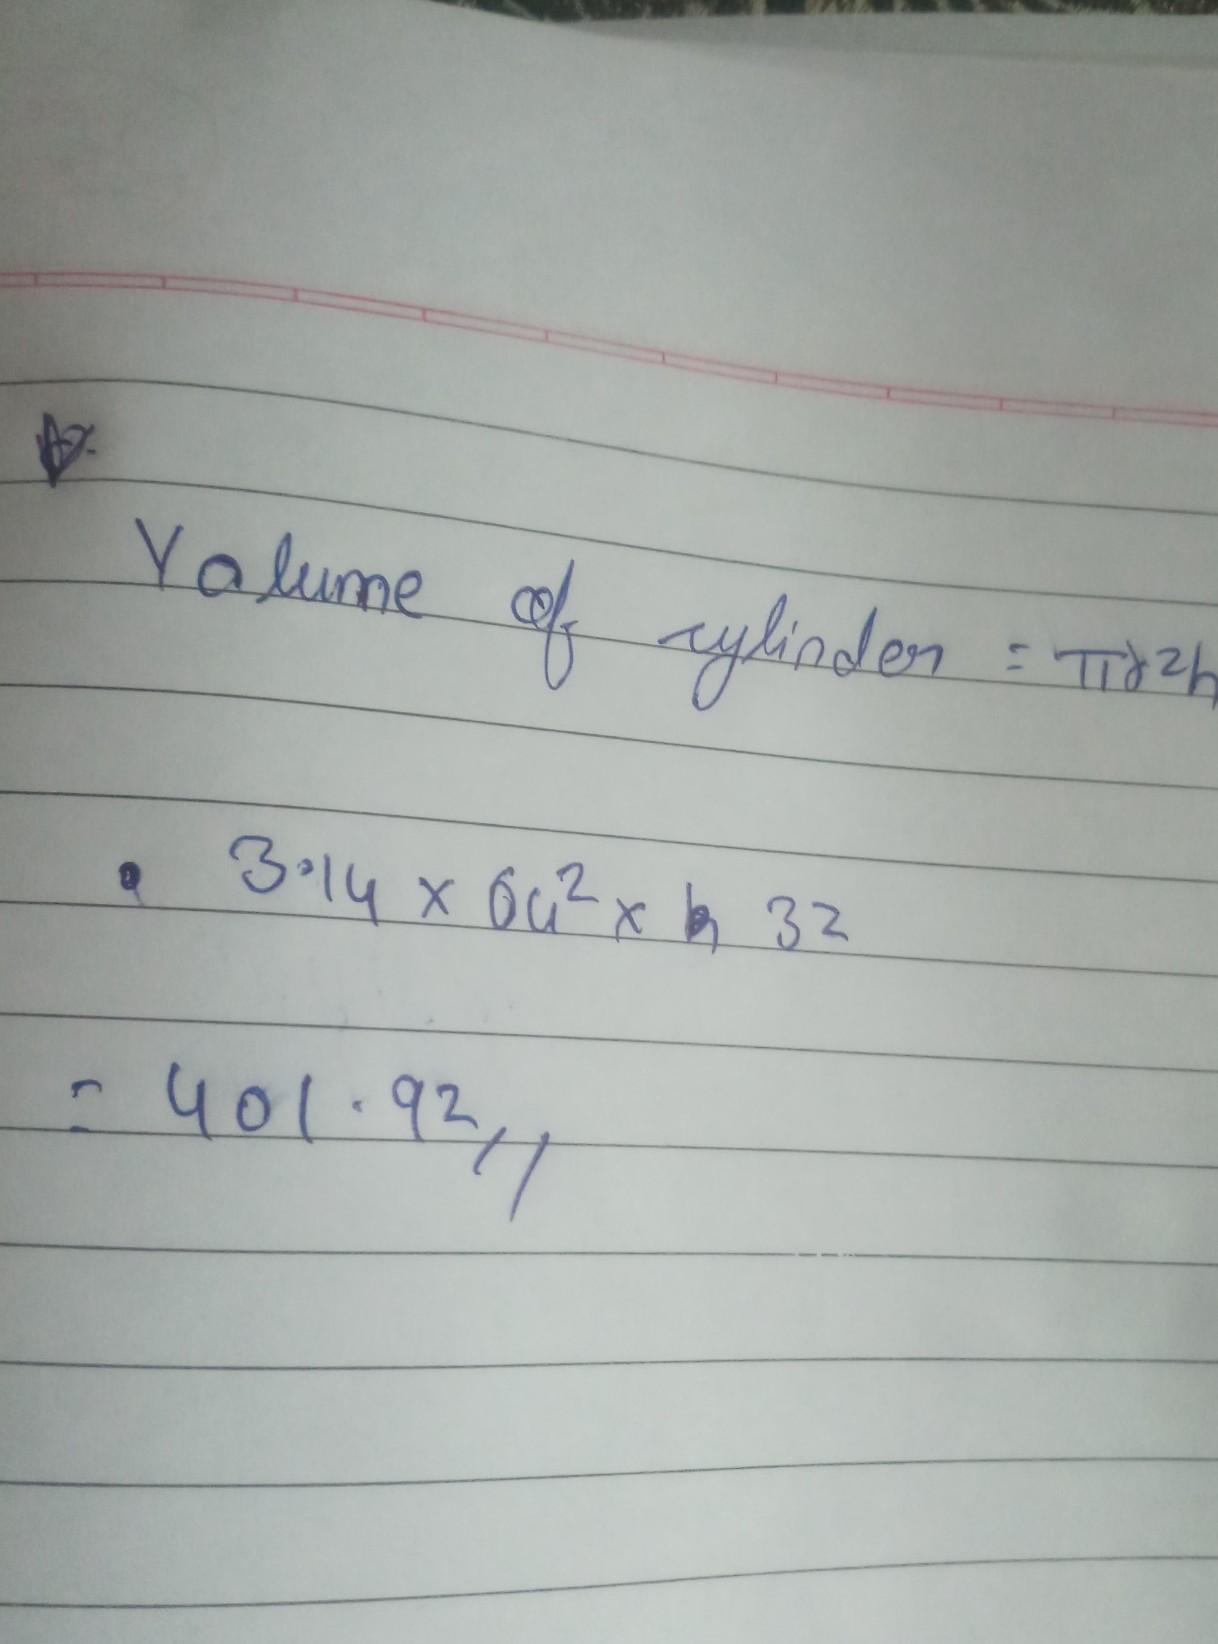 Volume of cylinder = πr2h
3.14 x 64² x 32
= 401.92,,